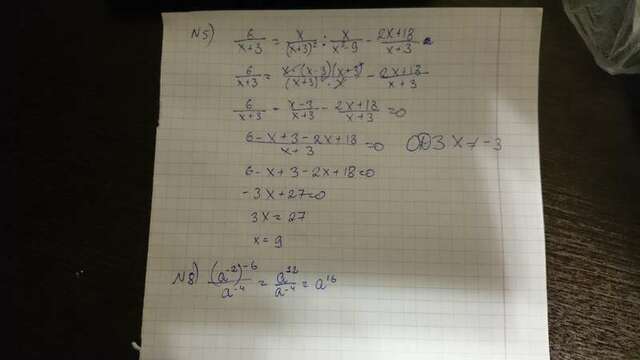 N5) 6/(x+3) = x/(x+3)² : x/(x²-9) - (2x+18)/(x+3)
6/(x+3) = x·(x-3)(x+3)/((x+3)²·x) - (2x+18)/(x+3)
6/(x+3) - (x-3)/(x+3) - (2x+18)/(x+3) = 0
(6-x+3-2x+18)/(x+3) = 0 ОДЗ x ≠ -3
6-x+3-2x+18=0
-3x+27=0
3x=27
x=9
N8) (a⁻²)⁻⁶/a⁻⁴ = a¹²/a⁻⁴ = a¹⁶